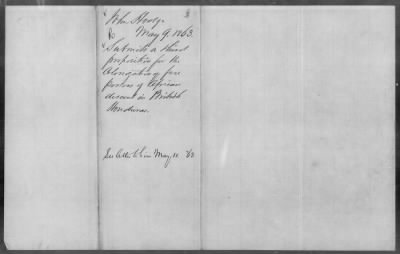 John Hodge
May 9. 1863.
Submits a third
proposition for the
Colonization of free
persons of African
descent in British
Honduras.
See letter to him May 11. 63